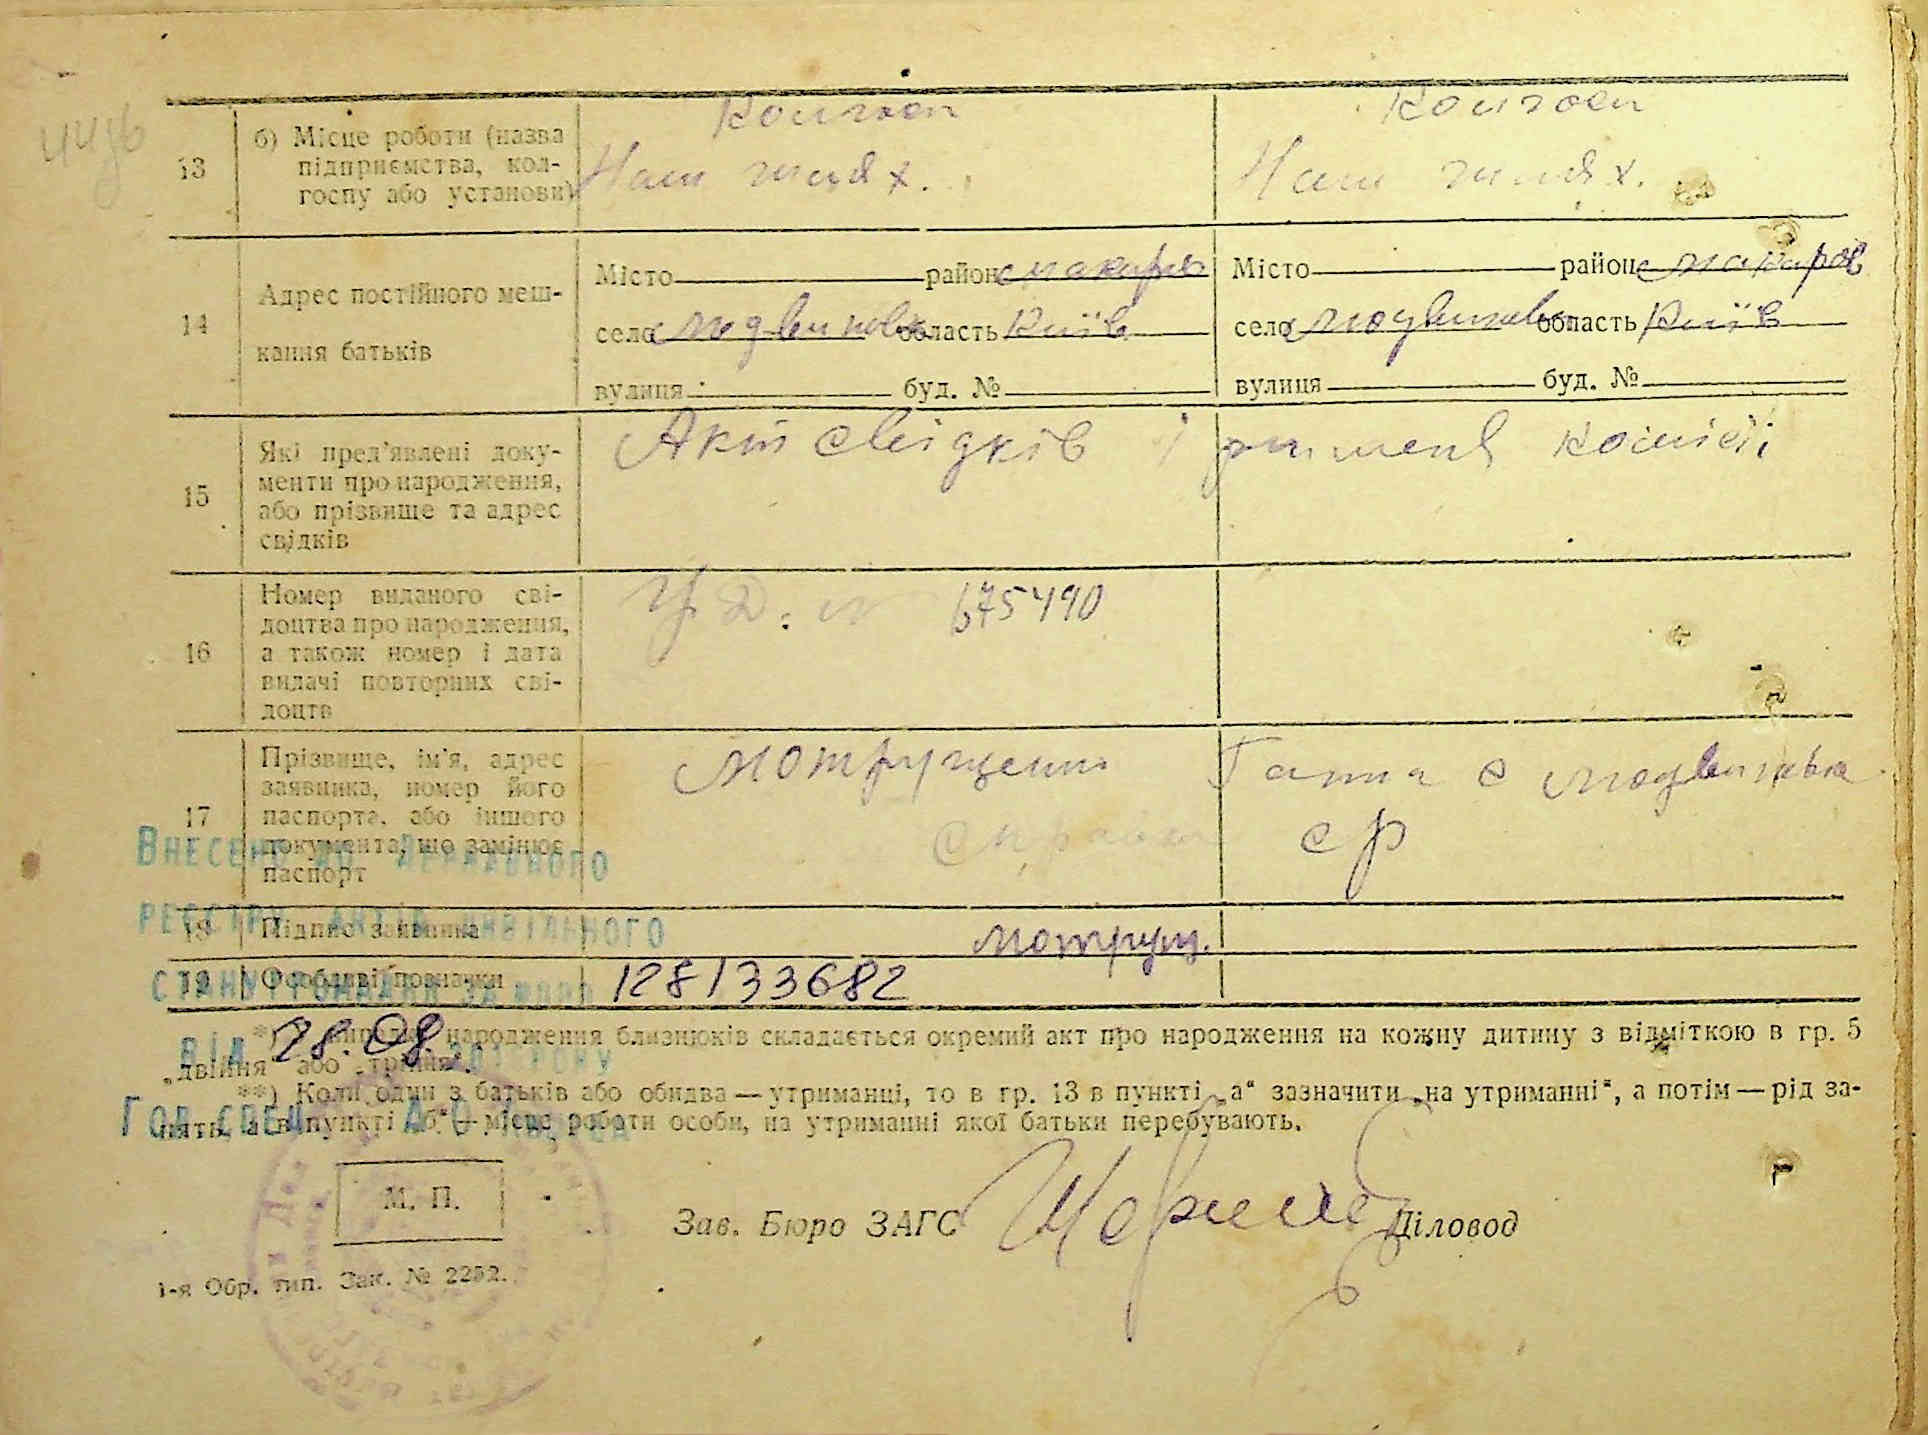 13
б) Місце роботи (назва
підприємства, кол-
госпу або установи)
Колгосп
Наш шлях.
Колгосп
Наш шлях.
14
Адрес постійного меш-
кання батьків
Місто район Макарів
село Людвинівка область Київ
вулиця буд. №
Місто район Макарів
село Людвинівка область Київ
вулиця буд. №
15
Які пред'явлені доку-
менти про народження,
або прізвище та адрес
свідків
Акт свідків і комісії
16
Номер виданого сві-
доцтва про народження,
а також номер і дата
видачі повторних сві-
доцтв
675490
17
Прізвище, ім'я, адрес
заявника, номер його
паспорта, або іншого
документа, що замінює
паспорт
Ганна с
справка ср
18
Підпис заявника
19
Особливі позначки
128133682
Внесено до Державного
реєстру актів цивільного
стану громадян за №
від 28.08. року
Гол.спец.
народження близнюків складається окремий акт про народження на кожну дитину з відміткою в гр. 5
„двійня" або „трійня".
**) Коли один з батьків або обидва—утриманці, то в гр. 13 в пункті „а" зазначити „на утриманні", а потім—рід за-
няття, а в пункті „б"—місце роботи особи, на утриманні якої батьки перебувають.
М. П.
Зав. Бюро ЗАГС
Діловод
1-я Обр. тип. Зак. № 2252.